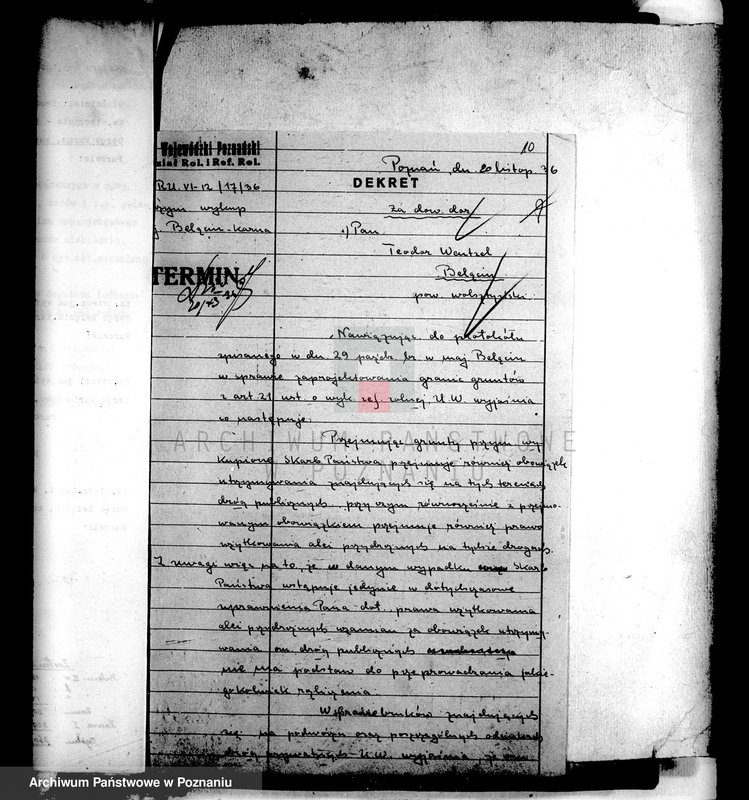 10
Wojewódzki Poznański
ział Rol. i Ref. Rol.
Poznań, dn. 20 listop. 36
R.U. VI-12/17/36
DEKRET
przym. wykup
za dow. dor.
j. Bełęcin-Karna
1) Pan
Teodor
Bełęcin
TERMIN
pow. wolsztyński
Nawiązując do protokółu
spisanego w dn. 29 paźdz. br. w maj. Bełęcin
w sprawie zaprojektowania granic gruntów
z art 21 ust. o wyk. ref. rolnej U.W. wyjaśnia
co następuje:
Przejmując grunty przym. wy
kupione Skarb Państwa przejmuje również obowiązek
utrzymywania znajdujących się na tych terenach
dróg publicznych, przyczym równocześnie z przejmo-
wanym obowiązkiem przejmuje również prawo
użytkowania alei przydrożnych na tychże drogach.
Z uwagi więc na to, że w danym wypadku Skarb
Państwa wstępuje jedynie w dotychczasowe
uprawnienia Pana dot. prawa użytkowania
alei przydrożnych wzamian za obowiązek utrzymy-
wania om. dróg publicznych
nie ma podstaw do przeprowadzania jakie-
gokolwiek rozliczenia.
W sprawie bruków znajdujących
się na podwórzu oraz poszczególnych odcinkach
dróg prywatnych U.W. wyjaśnia
ARCHIWUM PAŃSTWOWE
W POZNANIU
Archiwum Państwowe w Poznaniu